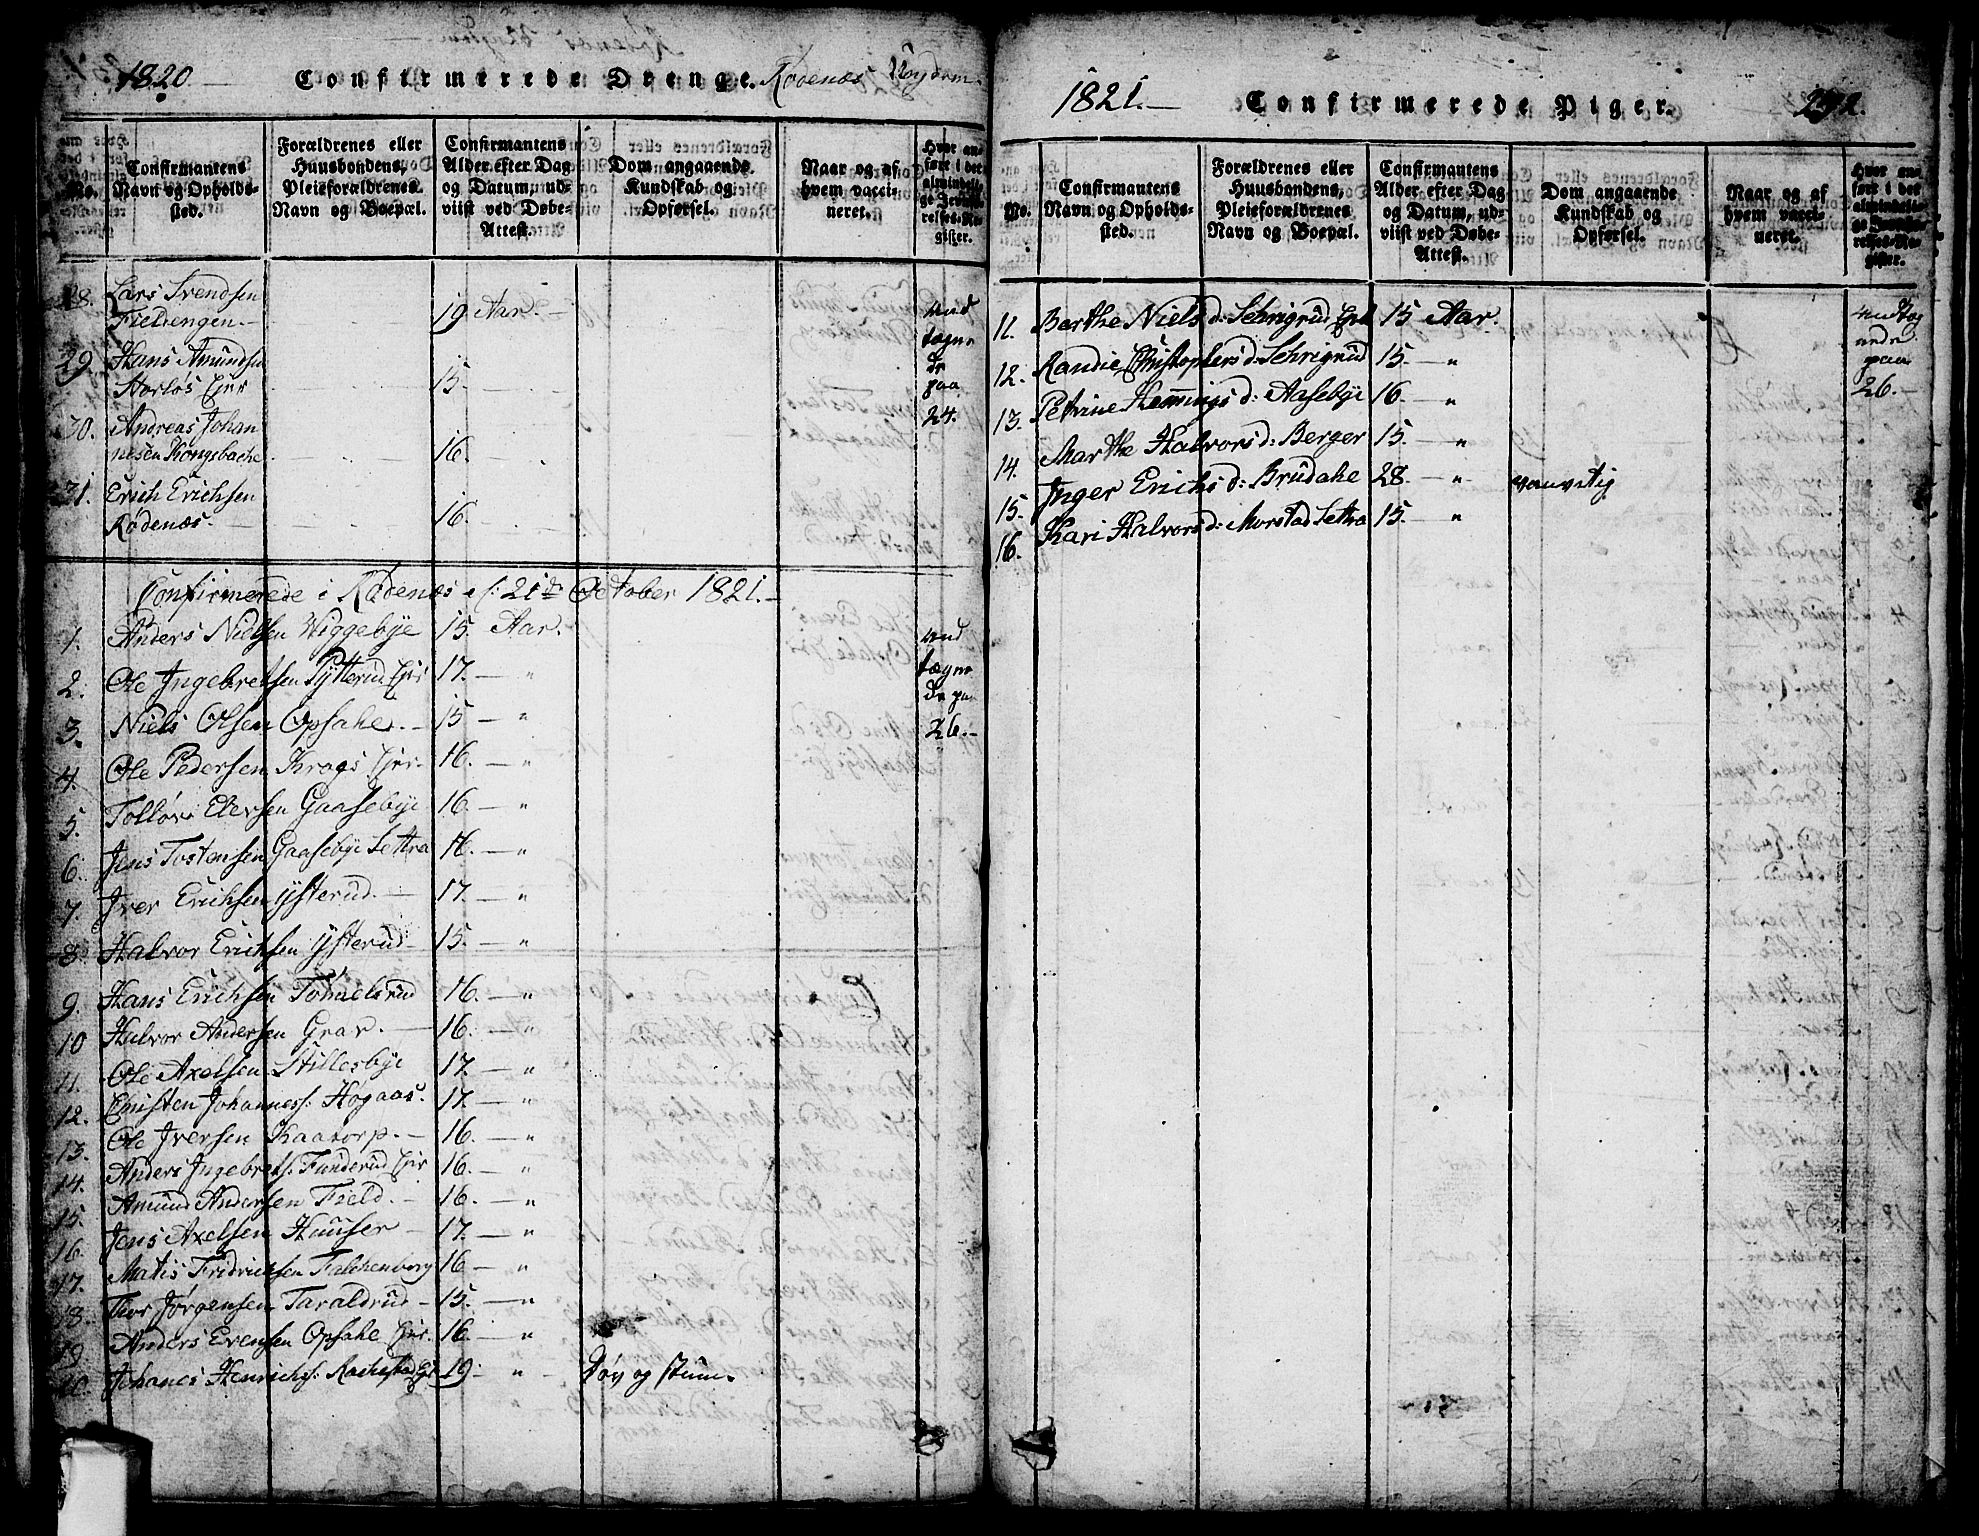 1820. Confirmerede Drenge. Rødenæs Ungdom.
No. Confirmantens Navn og Opholdssted. Forældrenes eller Huusbondens, Pleieforældrenes Navn og Boepæl. Confirmantens Alder efter Dag og Datum, udviist ved Døbe-Attest. Dom angaaende Kundskab og Opførsel. Naar og af hvem vaccineret. Hvor anført i det almindelige Jevnførelses-Register.
28. Lars Svendsen
Fieldengen. 19 Aar.
29. Hans Amundsen
15
30. Andreas Johan
nesen Kongsbache 16.
31. Erich Erichsen
Rødenæs. 16.
und
tagne
de
paa
24.
Confirmerede i Rødenæs 21de October 1821.
1. Anders Nielsen Wiggebye 15. Aar.
2. Ole Ingebretsen Ejer 17. — "
3. Niels Olsen Opsahe. 15 — "
4. Ole Pedersen Krogs Ejer. 16. — "
5. Tollov Elersen Gaasebye 16. — "
6. Jens Tostensen Gaasebye Settra 16. — "
7. Iver Erichsen Ysterud. 17. — "
8. Halvor Erichsen Ysterud 15. — "
9. Hans Erichsen 16. — "
10 Halvor Andersen Grav. 16. — "
11. Ole Axelsen Stillesbye 17. — "
12. Christen Johanness: Hogaas. 17. — "
13. Ole Iversen Kaatorp. 16. — "
14. Anders Ingebrets: Funderud Ejer 16. — "
15. Amund Andersen Field. 16. — "
16. Jens Axelsen Hauser 17. — "
17. Matis Fridrichsen Falchenborg 16 — "
18. Thor Jørgensen Taraldrud 15. — "
19 Anders Evensen Opsahe Ejer. 16. — "
20. Johanes Henrichs: 19. " Døv og stum.
und
tagne
de paa
26.
1821. Confirmerede Piger. 292.
No. Confirmantens Navn og Opholdssted. Forældrenes eller Huusbondens, Pleieforældrenes Navn og Boepæl. Confirmantens Alder efter Dag og Datum, udviist ved Døbe-Attest. Dom angaaende Kundskab og Opførsel. Naar og af hvem vaccineret. Hvor anført i det almindelige Jevnførelses-Register.
11. Barthe Niels d: Sehrigrud 15 Aar.
12. Randie Christophers d: Sehrigrud 15. — "
13. Petrine Hemmings d: Aasebye 16. "
14. Marthe Halvors d: Berger 15. "
15. Inger Erichs d: Brudahe 28. — " vanvitig
16. Kari Halvors d: Morstad Settra 15. — "
undtag
nede
paa
26.